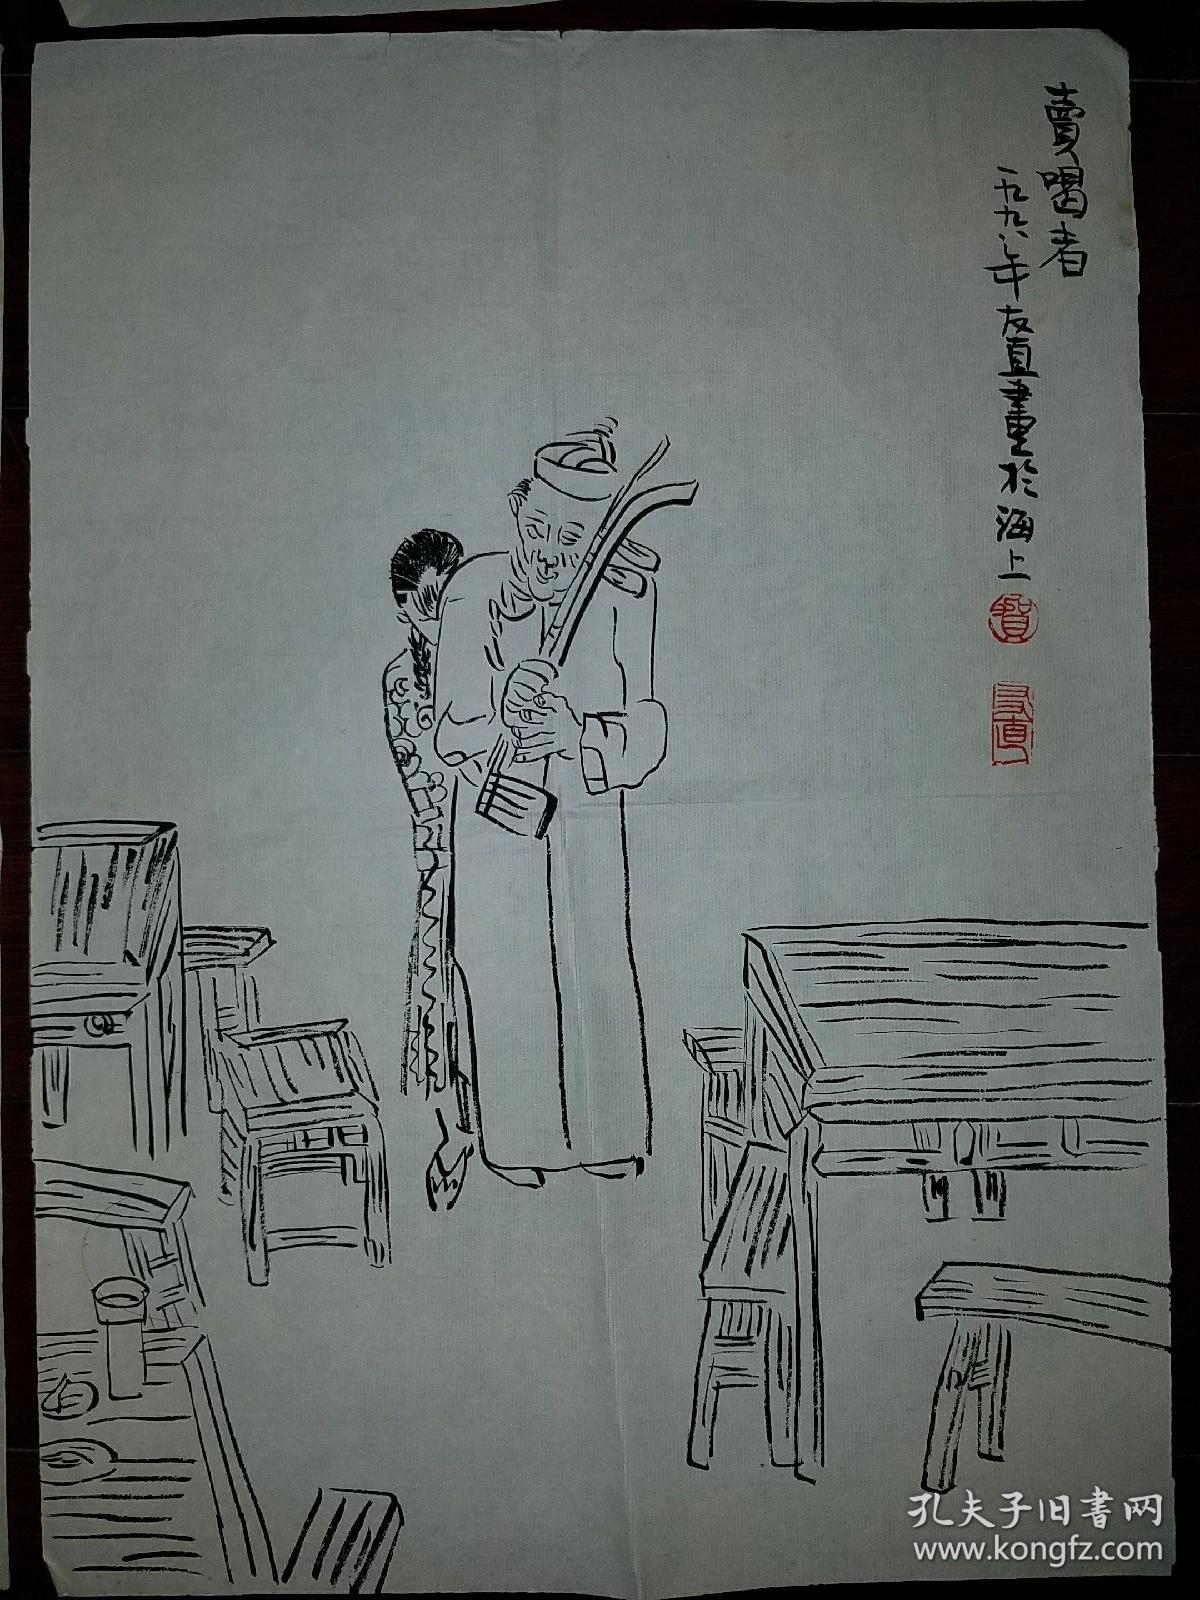 賣唱者
一九九八年友直畫於海上
賀
友直
孔夫子旧書网
www.kongfz.com